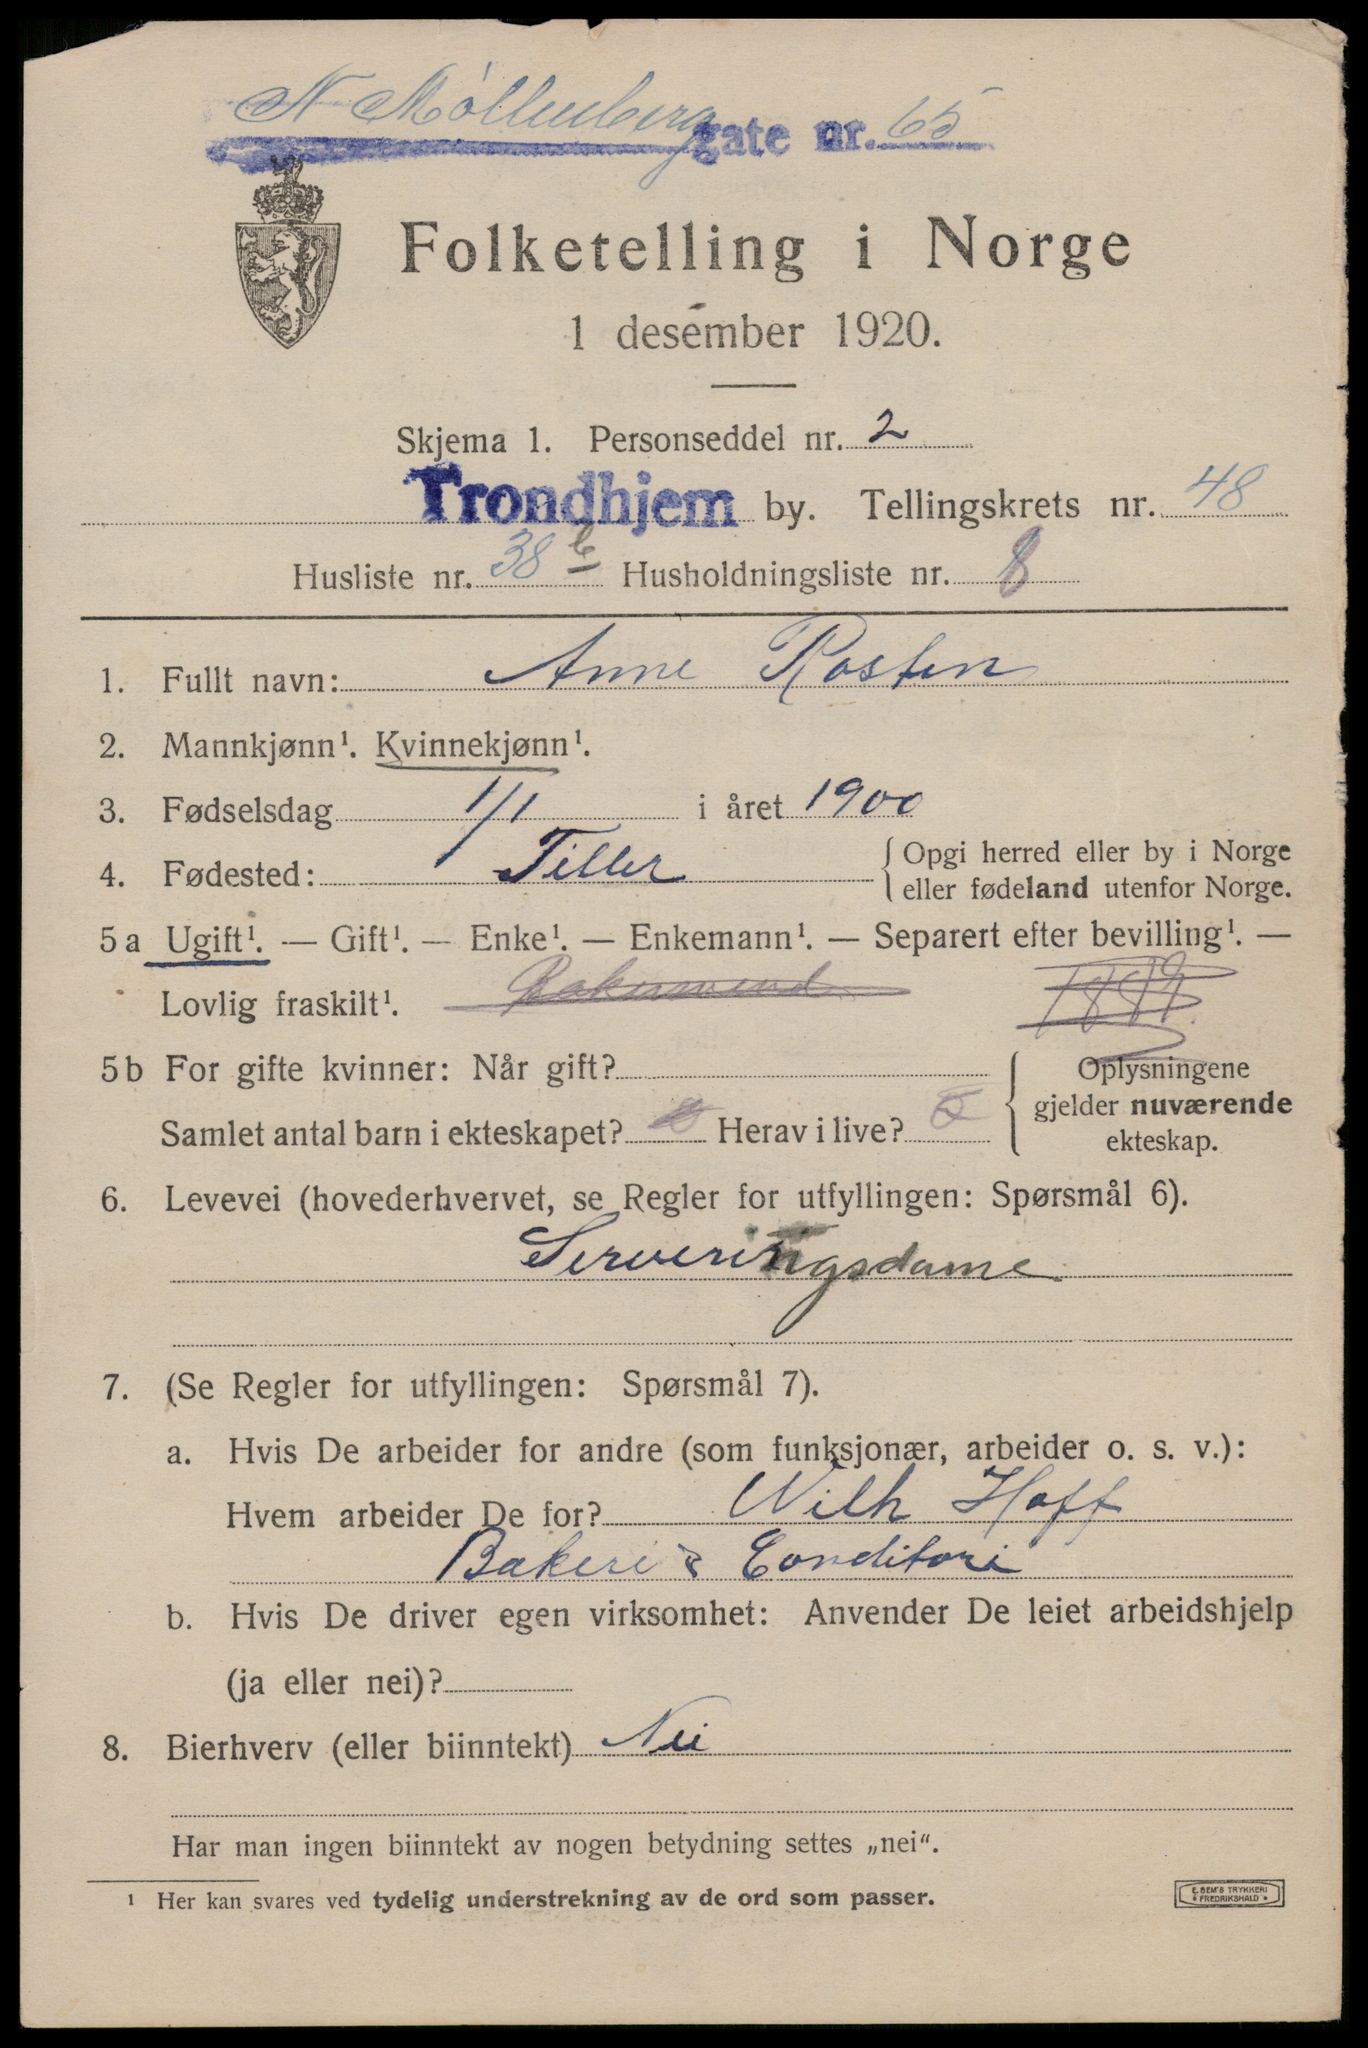 N Møllenberg gate nr. 65
Folketelling i Norge
1 desember 1920.
Skjema 1. Personseddel nr. 2
Trondhjem by. Tellingskrets nr. 48
Husliste nr. 38 b Husholdningsliste nr. 8
1. Fullt navn: Anne Rosten
2. Mannkjønn¹. Kvinnekjønn¹.
3. Fødselsdag 1/1 i året 1900
4. Fødested: Tiller { Opgi herred eller by i Norge
eller fødeland utenfor Norge.
5 a Ugift¹. — Gift¹. — Enke¹. — Enkemann¹. — Separert efter bevilling¹. —
Lovlig fraskilt¹.
5 b For gifte kvinner: Når gift?
Samlet antal barn i ekteskapet? Herav i live?
Oplysningene
gjelder nuværende
ekteskap.
6. Levevei (hovederhvervet, se Regler for utfyllingen: Spørsmål 6).
Serveringsdame
7. (Se Regler for utfyllingen: Spørsmål 7).
a. Hvis De arbeider for andre (som funksjonær, arbeider o. s. v.):
Hvem arbeider De for? Wilh Hoff
Bakeri & Conditori
b. Hvis De driver egen virksomhet: Anvender De leiet arbeidshjelp
(ja eller nei)?
8. Bierhverv (eller biinntekt) Nei
Har man ingen biinntekt av nogen betydning settes „nei".
¹ Her kan svares ved tydelig understrekning av de ord som passer.
E. SEM'S TRYKKERI
FREDRIKSHALD